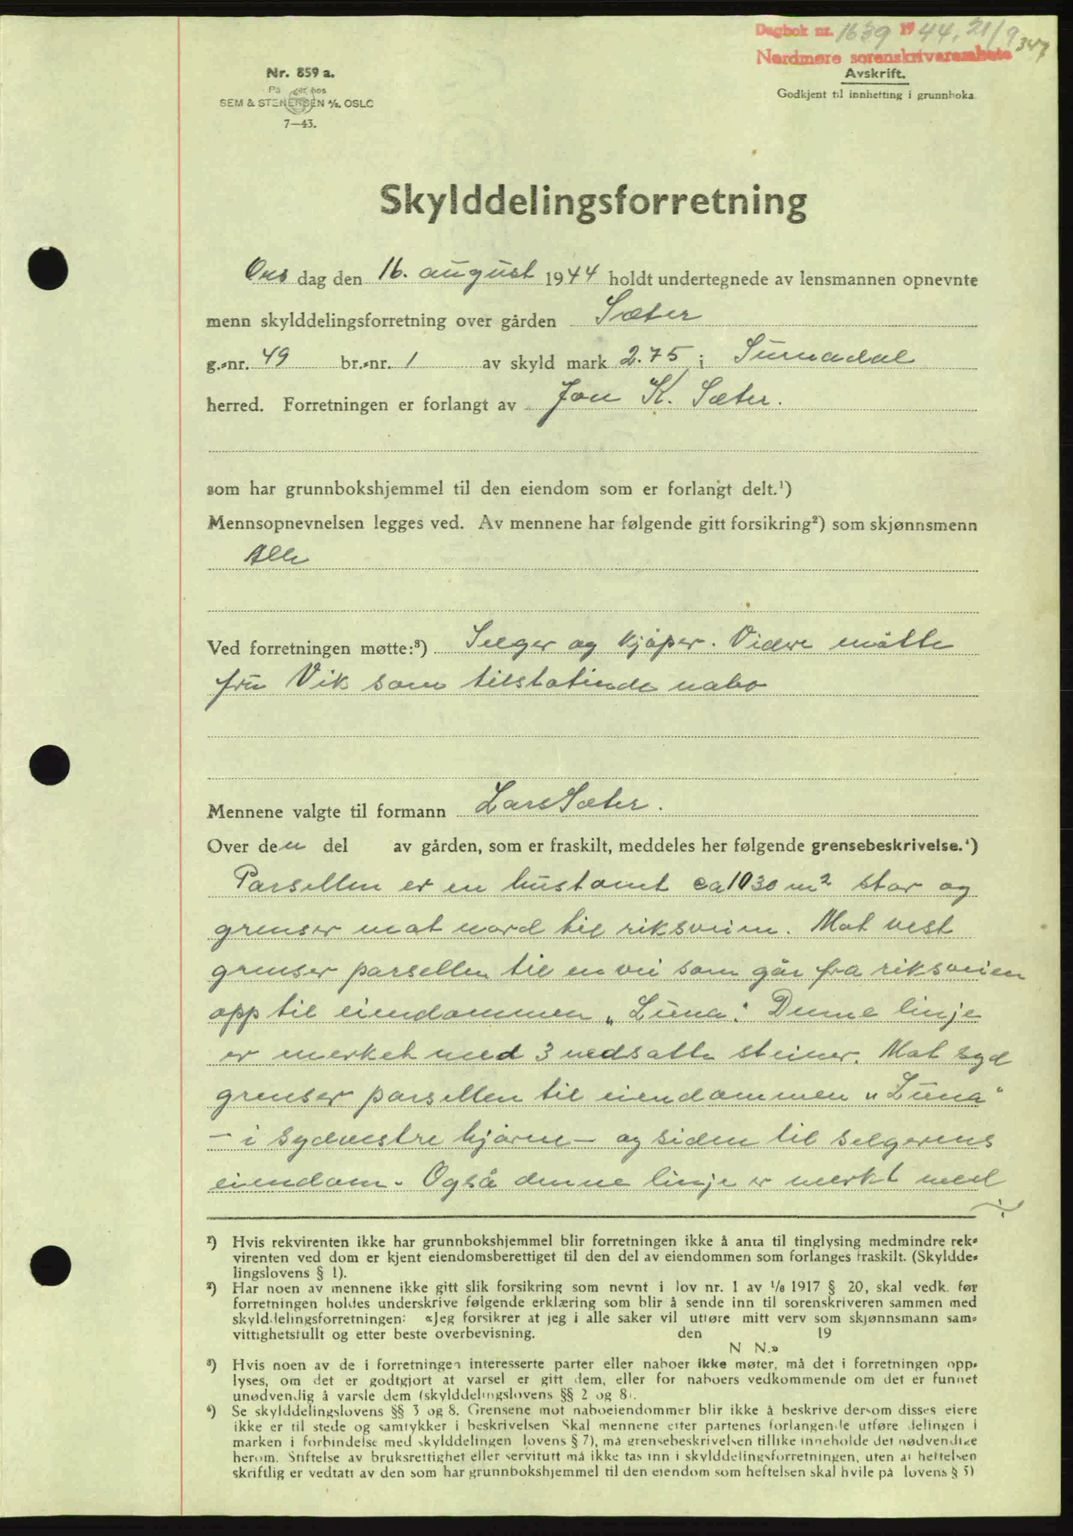 Dagbok nr. 1639 1944, 21/9
Nordmøre sorenskriverembete 347
Nr. 859 a.
SEM & STENERSEN A/S, OSLO
7—43.
Avskrift.
Godkjent til innhefting i grunnboka
Skylddelingsforretning
Ons dag den 16. august 1944 holdt undertegnede av lensmannen opnevnte
menn skylddelingsforretning over gården Sæter
g.-nr. 49 br.-nr. 1 av skyld mark 2.75 i Surnadal
herred. Forretningen er forlangt av Jon K. Sæter.
som har grunnbokshjemmel til den eiendom som er forlangt delt.¹)
Mennsopnevnelsen legges ved. Av mennene har følgende gitt forsikring²) som skjønnsmenn
Alle
Ved forretningen møtte:³) Selger og kjøper. Videre møtte
fru Vik som tilstøtende nabo
Mennene valgte til formann Lars Sæter.
Over den del av gården, som er fraskilt, meddeles her følgende grensebeskrivelse.⁴)
Parsellen er en hustomt ca 1030 m² stor og
grenser mot nord til riksveien. Mot vest
grenser parsellen til en vei som går fra riksveien
opp til eiendommen „Luna". Denne linje
er merket med 3 nedsatte steiner. Mot syd
grenser parsellen til eiendommen „Luna"
– i sydvestre hjørne – og siden til selgerens
eiendom. Også denne linje er merkt med
¹) Hvis rekvirenten ikke har grunnbokshjemmel blir forretningen ikke å anta til tinglysing medmindre rek-
virenten ved dom er kjent eiendomsberettiget til den del av eiendommen som forlanges fraskilt. (Skyldde-
lingslovens § 1).
²) Har noen av mennene ikke gitt slik forsikring som nevnt i lov nr. 1 av 1/6 1917 § 20, skal vedk. før
forretningen holdes underskrive følgende erklæring som blir å sende inn til sorenskriveren sammen med
skylddelingsforretningen: «Jeg forsikrer at jeg i alle saker vil utføre mitt verv som skjønnsmann sam-
vittighetsfullt og etter beste overbevisning. den 19
N N.»
³) Hvis noen av de i forretningen interesserte parter eller naboer ikke møter, må det i forretningen opp-
lyses, om det er godtgjort at varsel er gitt dem, eller for naboers vedkommende om det er funnet
unødvendig å varsle dem (skylddelingslovens §§ 2 og 8).
⁴) Se skylddelingslovens §§ 3 og 8. Grensene mot naboeiendommer blir ikke å beskrive dersom disses eiere
ikke er til stede og samtykker i beskrivelsen Skal mennene etter partenes forlangende utføre delingen i
marken i forbindelse med skylddelingen lovens § 7), må grensebeskrivelsen tillike inneholde det nødvendige
herom. Stiftelse av bruksrettighet eller servitutt må ikke tas inn i skylddelingsforretningen, uten at heftelsen
skriftlig er vedtatt av den som har grunnbokshjemmel til den eiendom som heftelsen skal hvile på lovens § 5)